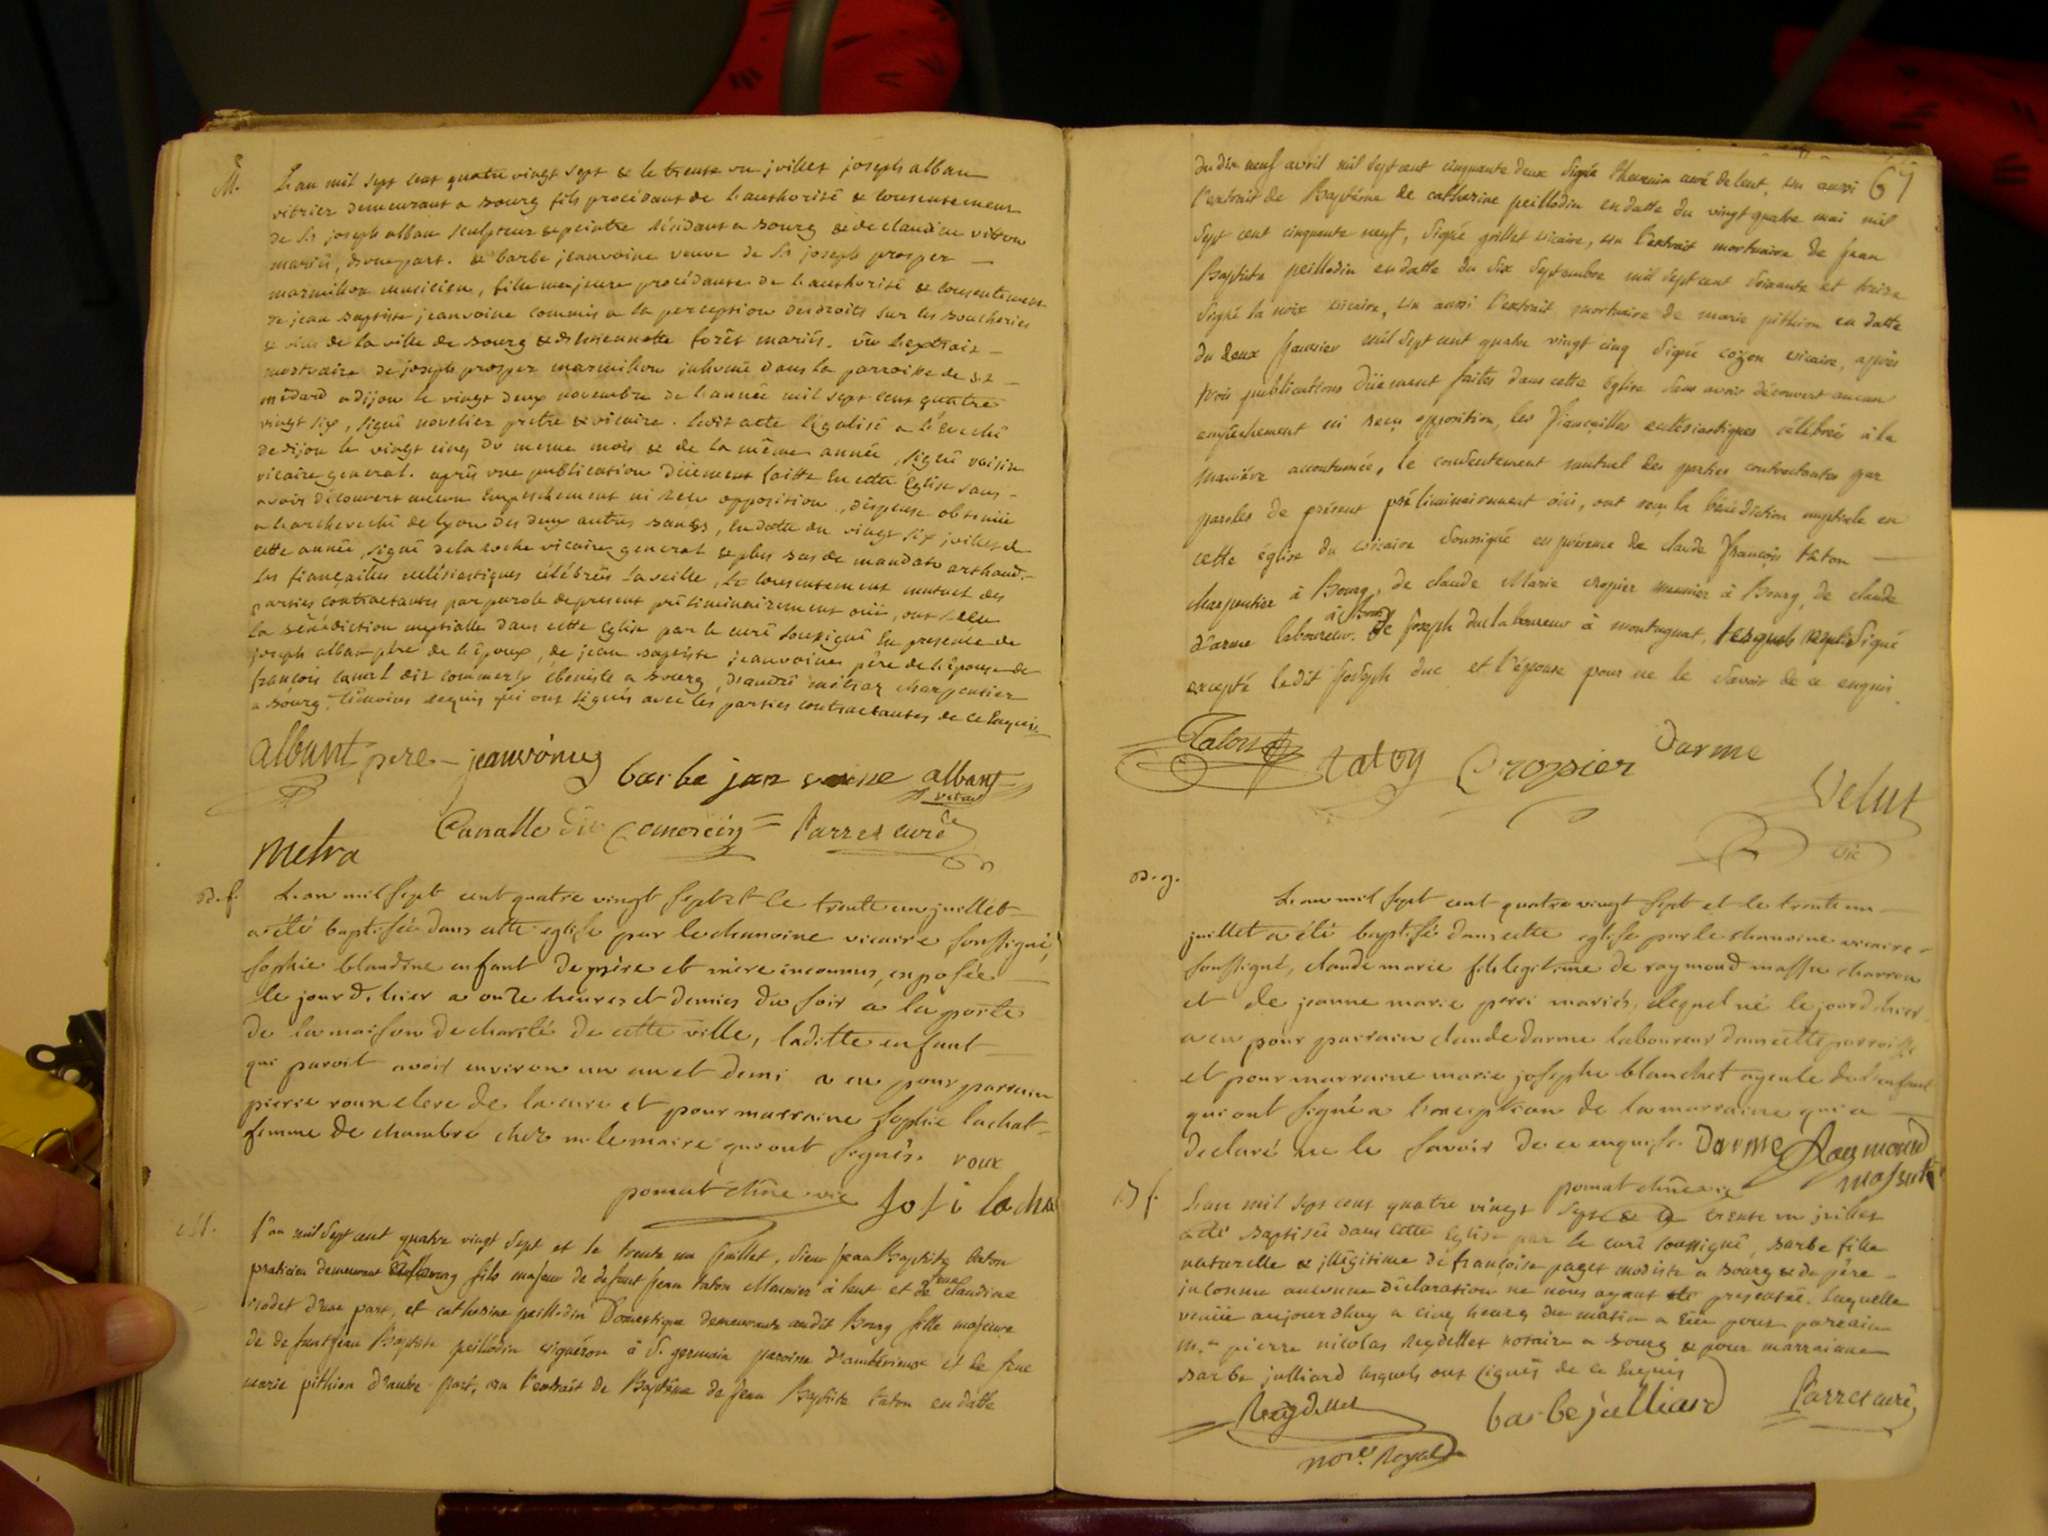 M.
L'an mil sept cent quatre vingt sept & le trente un juillet joseph alban
vitrier demeurant a bourg fils procédant de l'authorité & consentement
de Sr joseph alban sculpteur & peintre résidant a bourg & de claudine
mariés, d'une part. & barbe jeanvoine veuve de Sr joseph prosper
marmillon musicien, fille majeure procédante de l'authorité & consentement
de jean baptiste jeanvoine commis a la perception des droits sur les boucheries
& vins de la ville de bourg & forêt mariés. vu l'extrait
mortuaire de joseph prosper marmillon inhumé dans la parroisse de st
médard a dijon le vingt deux novembre de l'année mil sept cent quatre
vingt six, signé novelier prêtre & vicaire. ledit acte légalisé a l'évêché
de dijon le vingt cinq du meme mois & de la même année, signé voisin
vicaire general. après une publication duement faitte en cette Eglise sans
avoir découvert aucun Empeschement ni reçu opposition, dispense obtenüe
a l'archeveché de lyon des deux autres bans, en datte du vingt six juillet de
cette année, signé de la roche vicaire general & plus bas de mandato arthaud.
les fiançailles ecclésiastiques célébrées la veille, le consentement mutuel des
parties contractantes par parole de present préliminairement ouïi, ont reçu
la bénédiction nuptialle dans cette Eglise par le curé soussigné En presence de
joseph alban père de l'époux, de jean baptiste jeanvoine père de l'épouse de
françois canal dit commercy ébeniste a bourg, d'andré métraz charpentier
a bourg, témoins requis qui ont signés avec les parties contractantes de ce Enquis
albant pere jeanvoine barbe jan voine albant
vitrier
Canalle dit Comercy Parres curé
metra
B. f. L'an mil sept cent quatre vingt sept et le trente un juillet
a été baptisée dans cette eglise par le chanoine vicaire soussigné,
sophie blandine enfant de père et mère inconnus, exposée
le jour d'hier a onze heures et demies du soir a la porte
de la maison de charité de cette ville, laditte enfant
qui paroit avoir environ un an et demi a eu pour parrain
pierre roux clerc de la cure et pour marraine sophie lachat
femme de chambre chez m. lemaire qui ont signés. roux
pomat chne vic sofi lacha
M. l'an mil sept cent quatre vingt sept et le trente un juillet, sieur jean Baptiste taton
praticien demeurant à Bourg fils majeur de defunt jean taton Meunier à lent et de feue claudine
d'une part, et catherine peillodin Domestique demeurante audit Bourg fille majeure
de defunt jean Baptiste peillodin vigneron à St germain paroisse d'ambérieux et de feue
marie pithion d'autre part, vu l'extrait de Baptême de jean Baptiste taton en datte
67
du dix neuf avril mil sept cent cinquante deux signé curé de lent, vu aussi
l'extrait de Baptême de catherine peillodin en datte du vingt quatre mai mil
sept cent cinquante neuf, signé grillet vicaire, vu l'extrait mortuaire de jean
Baptiste peillodin en datte du six septembre mil sept cent soixante et treize
signé la noix vicaire, vu aussi l'extrait mortuaire de marie pithion en datte
du deux janvier mil sept cent quatre vingt cinq signé cozon vicaire, après
trois publications düement faites dans cette Eglise sans avoir découvert aucun
empêchement ni reçu opposition, les fiançailles ecclésiastiques célébrées à la
manière accoutumée, le consentement mutuel des parties contractantes par
paroles de présent préliminairement ouï, ont reçu la bénédiction nuptiale en
cette église du vicaire soussigné en présence de claude françois taton
charpentier à Bourg, de claude Marie cropier meunier à Bourg, de claude
d'arme laboureur à Bourg de joseph duc laboureur à montagnat, lesquels signé
excepté ledit joseph duc et l'épouse pour ne le savoir de ce enquis.
Taton taton Cropier Darme
Velut
vic
B. g. L'an mil sept cent quatre vingt sept et le trente un
juillet a été baptisé dans cette eglise par le chanoine vicaire
soussigné, claude marie fils legitime de raymond massu charron
et de jeanne marie perri mariés, lequel né le jour d'hier
a eu pour parrain claude darme laboureur dans cette parroisse
et pour marraine marie josephe blanchet ayeule de l'enfant
qui ont signé a l'exception de la marraine qui a
declaré ne le savoir de ce enquise. Darme Raymond
masut
pomat chne vic
B f. L'an mil sept cent quatre vingt sept & le trente un juillet
a été baptisée dans cette Eglise par le curé soussigné, barbe fille
naturelle & illégitime de françoise paget modiste a bourg & de père
inconnu aucune déclaration ne nous ayant été presentée. laquelle
venüe aujourdhuy a cinq heures du matin a Eu pour parrain
m.re pierre nicolas Reydellet notaire a bourg & pour marraine
barbe julliard lesquels ont signés de ce Enquis
Reydellet barbe julliard Parres curé,
nore. Royal